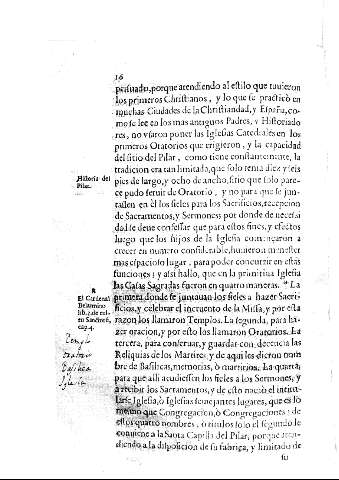 16
persuado, porque atendiendo al estilo que tuuieron
los primeros Christianos, y lo que se practicò en
muchas Ciudades de la Christiandad, y España, co-
mo se lee en los mas antiguos Padres, y Historiado
res, no vsaron poner las Iglesias Catedrales en los
primeros Oratorios que erigieron, y la capacidad
del sitio del Pilar, como tiene constantemente, la
tradicion era tan limitada, que solo tenia diez y seis
Historia del
Pilar.
pies de largo, y ocho de ancho, sitio que solo pare-
ce pudo seruir de Oratorio, y no para que se jun-
tassen en èl los fieles para los Sacrificios, recepcion
de Sacramentos, y Sermones; por donde de necessi-
dad se deue confessar que para estos fines, y efectos
luego que los hijos de la Iglesia començaron a
crecer en numero considerable, huuieron menester
mas espacioso lugar, para poder concurrir en estas
funciones; y assi hallo, que en la primitiua Iglesia
las Casas Sagradas fueron en quatro maneras. * La
8
El Cardenal
Belarmino
cap. 4.
primera donde se juntauan los fieles a hazer Sacri-
ficios, y celebrar el incruento de la Missa, y por esta
razon los llamaron Templos. La segunda, para ha-
zer oracion, y por esto los llamaron Oratorios. La
tercera, para conseruar, y guardar con decencia las
Reliquias de los Martires, y de aqui les dieron nom
bre de Basilicas, memorias, ò martirios. La quarta,
para que alli acudiessen los fieles a los Sermones, y
a recibir los Sacramentos, y de esta nuciò el intitu-
larse Iglesia, ò Iglesias semejantes lugares, que es lo
mesmo que Congregacion, ò Congregaciones: de
estos quatro nombres, ò titulos solo el segundo le
conuiene a la Santa Capilla del Pilar, porque aten-
diendo a la disposicion de su fabrica, y limitado de
Templo
Oratorio
Basilica
Iglesia
su